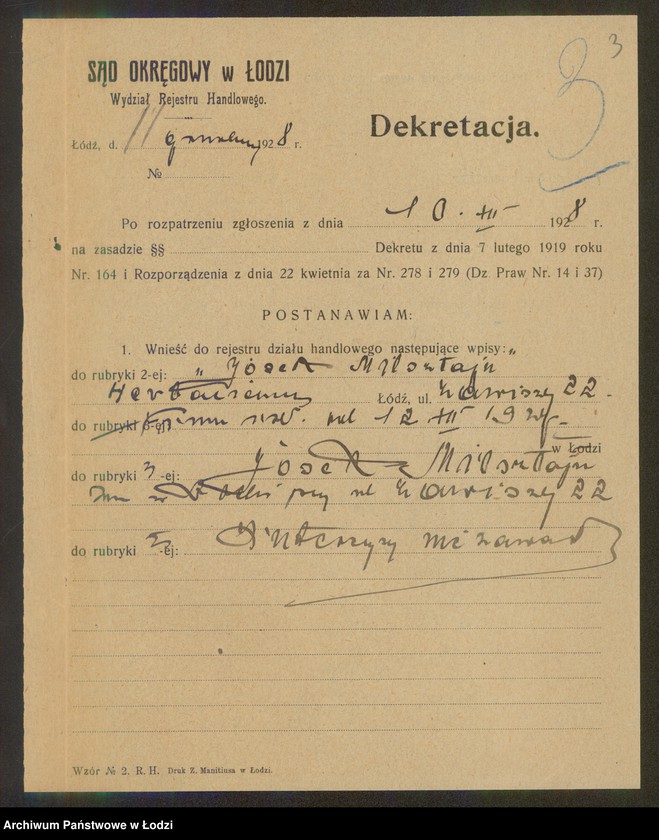 3
3
SĄD OKRĘGOWY w ŁODZI
Wydział Rejestru Handlowego.
Dekretacja.
Łódź, d. 11 1928 r.
№
Po rozpatrzeniu zgłoszenia z dnia 10. XII 1928 r.
na zasadzie §§ Dekretu z dnia 7 lutego 1919 roku
Nr. 164 i Rozporządzenia z dnia 22 kwietnia za Nr. 278 i 279 (Dz Praw Nr. 14 i 37)
POSTANAWIAM:
1. Wnieść do rejestru działu handlowego następujące wpisy: „
do rubryki 2-ej: „ Josek Milsztajn
Łódź, ul. Zawiszy 22.
do rubryki 12 XII
w Łodzi
do rubryki 3-ej: Josek Milsztajn
w ul Zawiszy 22
do rubryki 5-ej: Intercyzy nie zawarł
Wzór № 2. R. H. Druk Z. Manitiusa w Łodzi.
Archiwum Państwowe w Łodzi